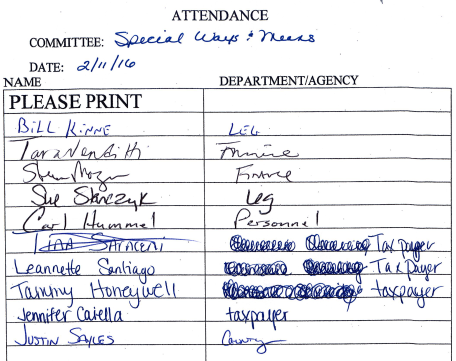 ATTENDANCE
COMMITTEE: Special Ways & Means
DATE: 2/11/16
NAME DEPARTMENT/AGENCY
PLEASE PRINT
BILL KINNE LEG
Tara Finance
Finance
Sue Leg
Carl Hummel Personnel
Taxpayer
Leannette Santiago Taxpayer
Tammy Honeywell taxpayer
Jennifer Catella taxpayer
JUSTIN SAYLES County